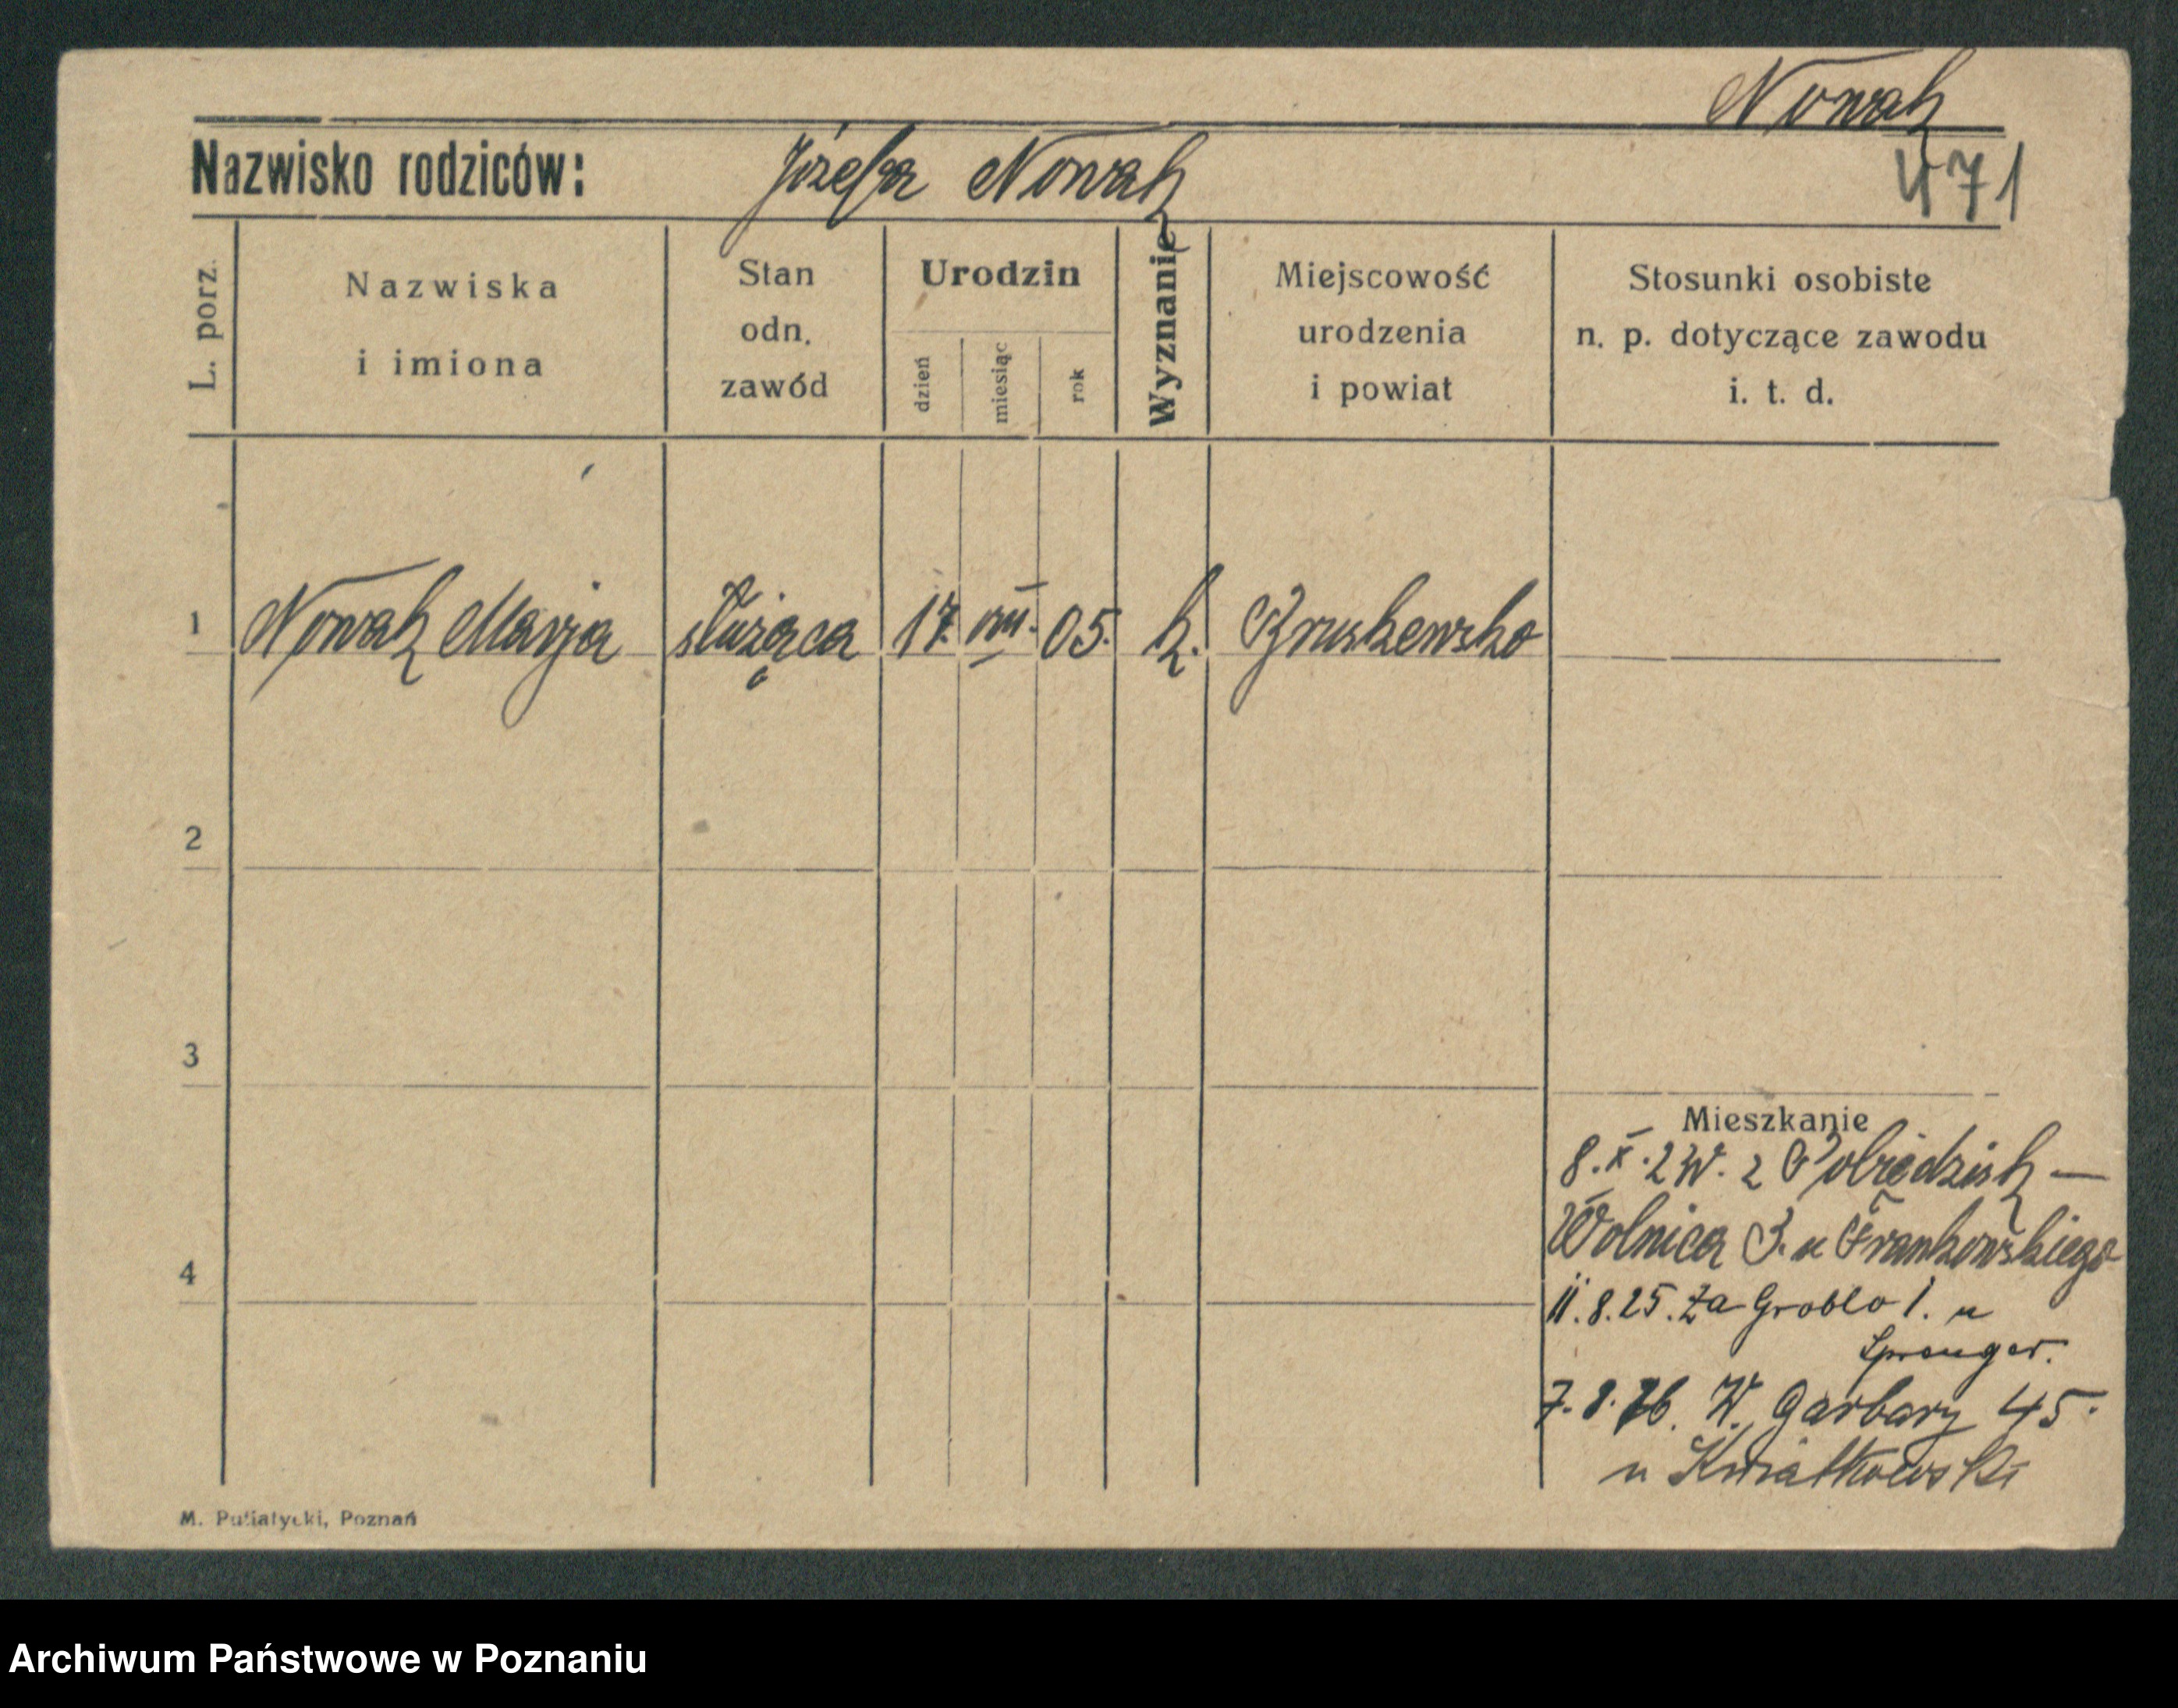 Nowak
Nazwisko rodziców: Józefa Nowak
471
L. porz.
Nazwiska
i imiona
Stan
odn.
zawód
Urodzin
dzień
miesiąc
rok
Wyznanie
Miejscowość
urodzenia
i powiat
Stosunki osobiste
n. p. dotyczące zawodu
i. t. d.
1 Nowak Marja służąca 17. VIII. 05. k.
2
3
Mieszkanie
8. X. 24 z Pobiedzisk —
4
Wolnica 3. u Frankowskiego
11.8.25. Za Groblo 1. u
Sprenger.
7. 8. 26. W. Garbary 45.
u Kwiatkowski
M. Putiatycki, Poznań
Archiwum Państwowe w Poznaniu